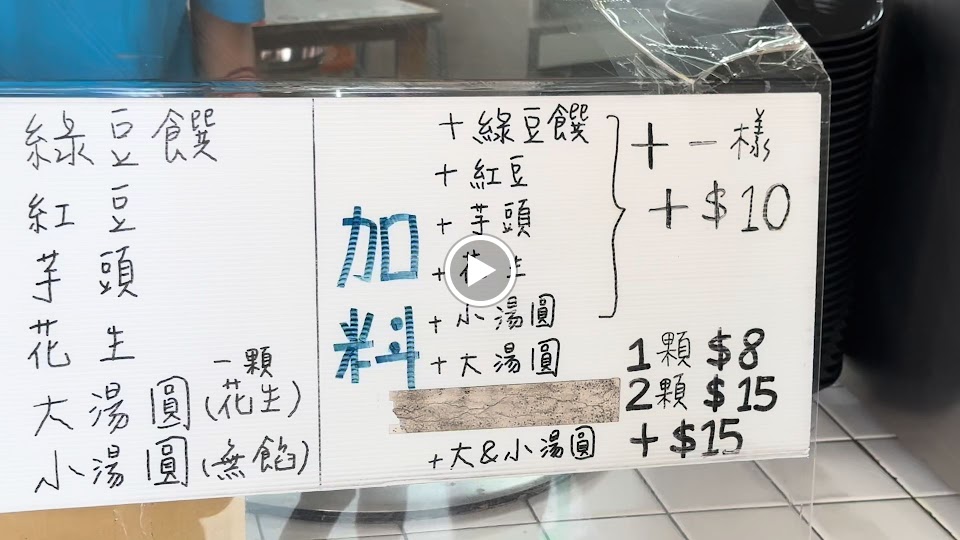 綠豆饌
紅豆
芋頭
花生
大湯圓(一顆花生)
小湯圓(無餡)
加料
+綠豆饌
+紅豆
+芋頭
+花生
+小湯圓
+一樣
+$10
+大湯圓 1顆 $8
2顆 $15
+大&小湯圓 +$15